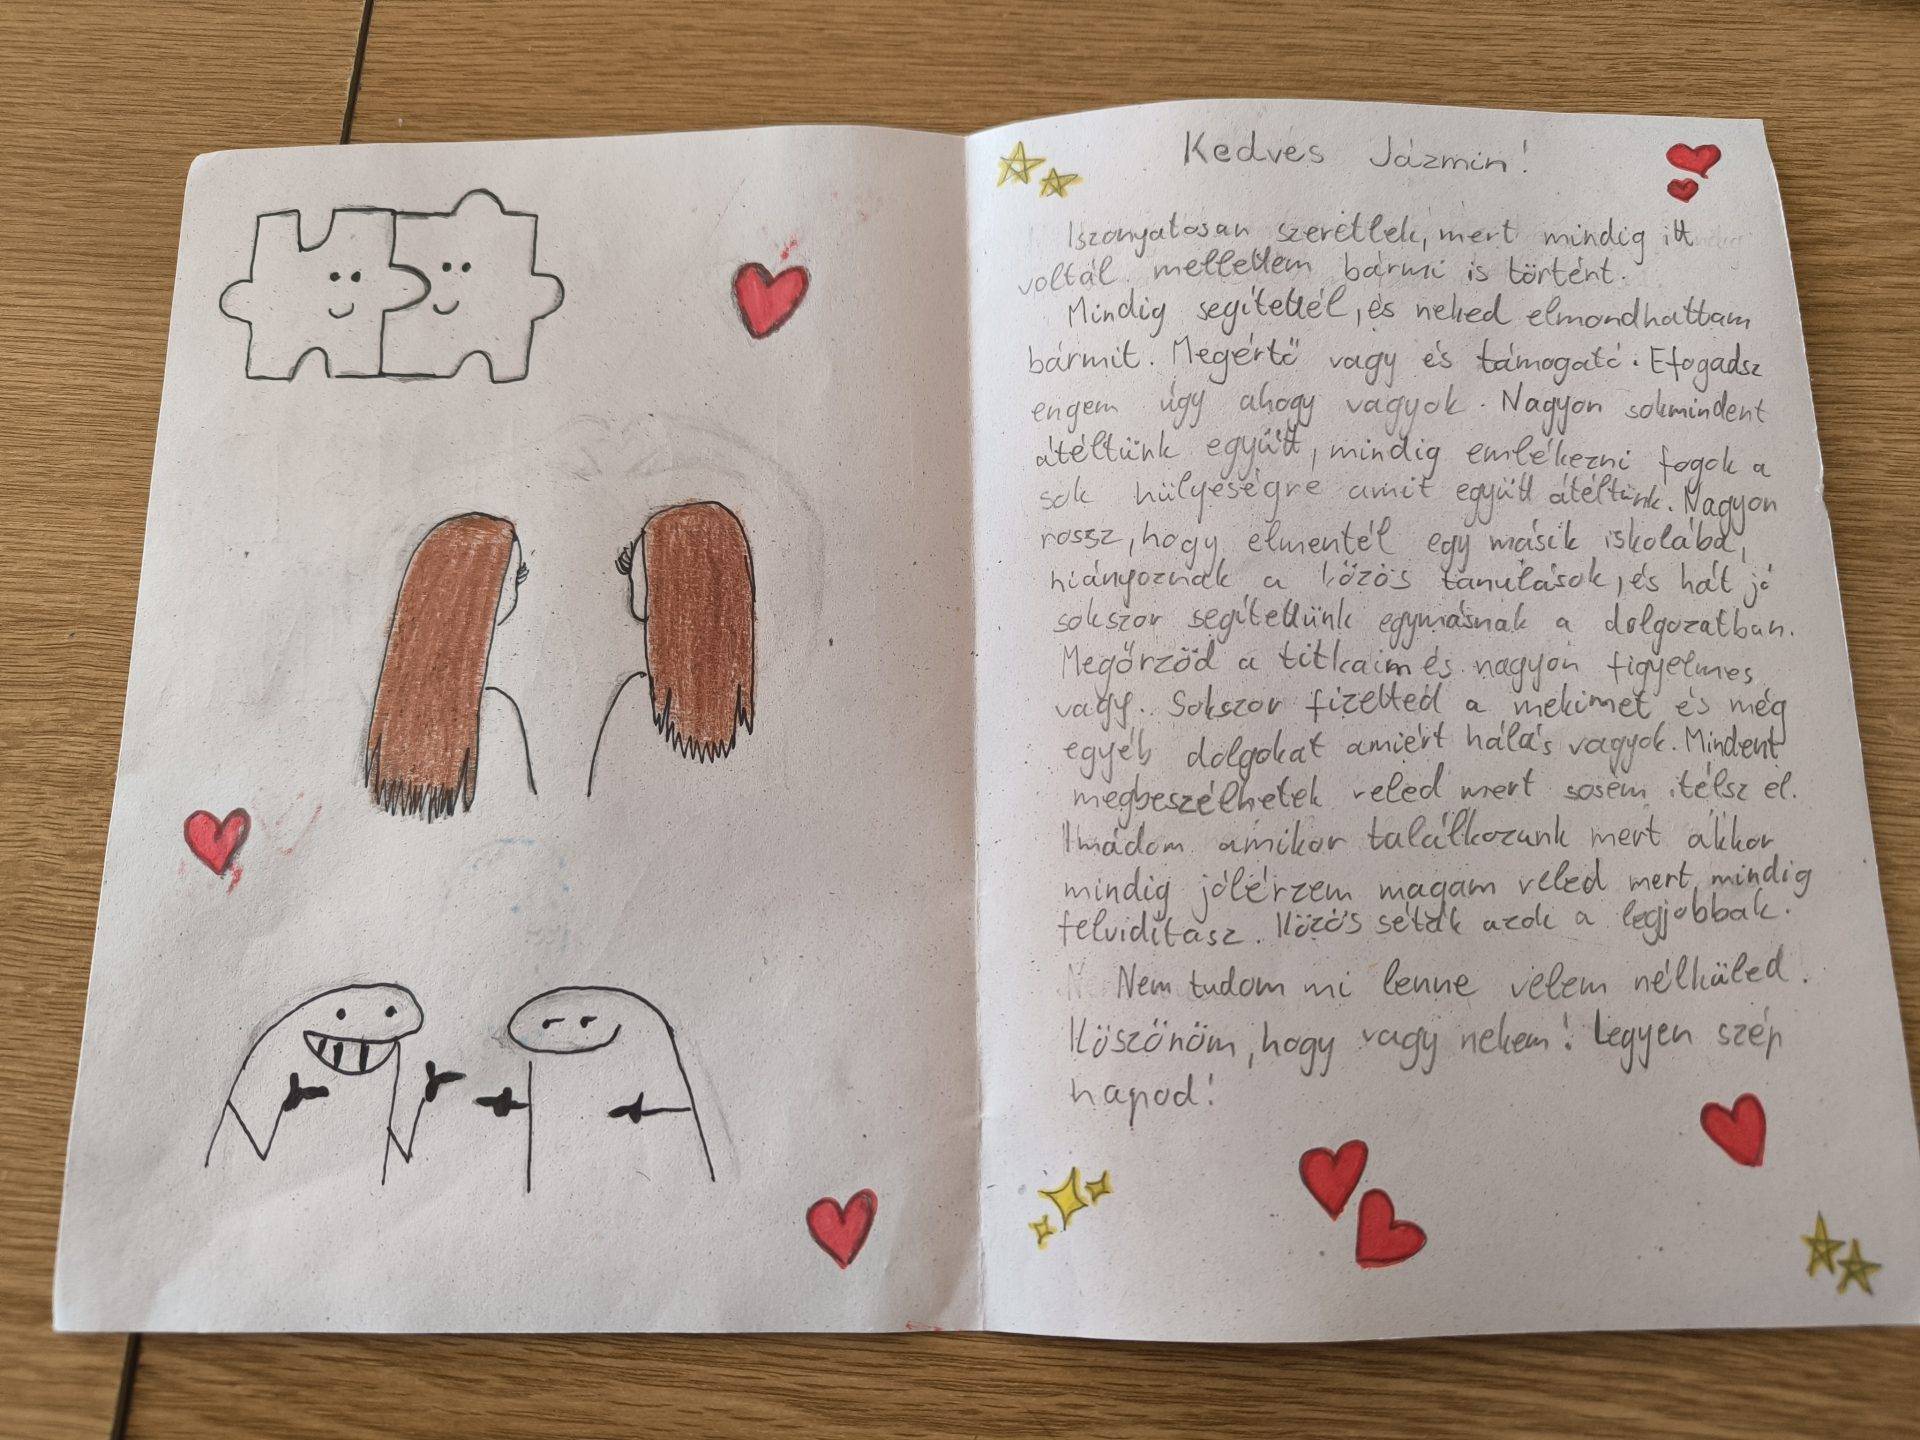 Kedves Jázmin!
Iszonyatosan szeretlek, mert mindig itt
voltál mellettem bármi is történt.
Mindig segítettél, és neked elmondhattam
bármit. Megértő vagy és támogató. Efogadsz
engem úgy ahogy vagyok. Nagyon sokmindent
átéltünk együtt, mindig emlékezni fogok a
sok hülyeségre amit együtt átéltünk. Nagyon
rossz, hogy elmentél egy másik iskolába,
hiányoznak a közös tanulások, és hát jó
sokszor segítettünk egymásnak a dolgozatban.
Megőrzöd a titkaim és nagyon figyelmes
vagy. Sokszor fizetted a mekimet és még
egyéb dolgokat amiért hálás vagyok. Mindent
megbeszélhetek veled mert sosem ítélsz el.
Imádom amikor találkozunk mert akkor
mindig jólérzem magam veled mert mindig
felvidítasz. Közös séták azok a legjobbak.
Nem tudom mi lenne velem nélküled.
Köszönöm, hogy vagy nekem! Legyen szép
napod!